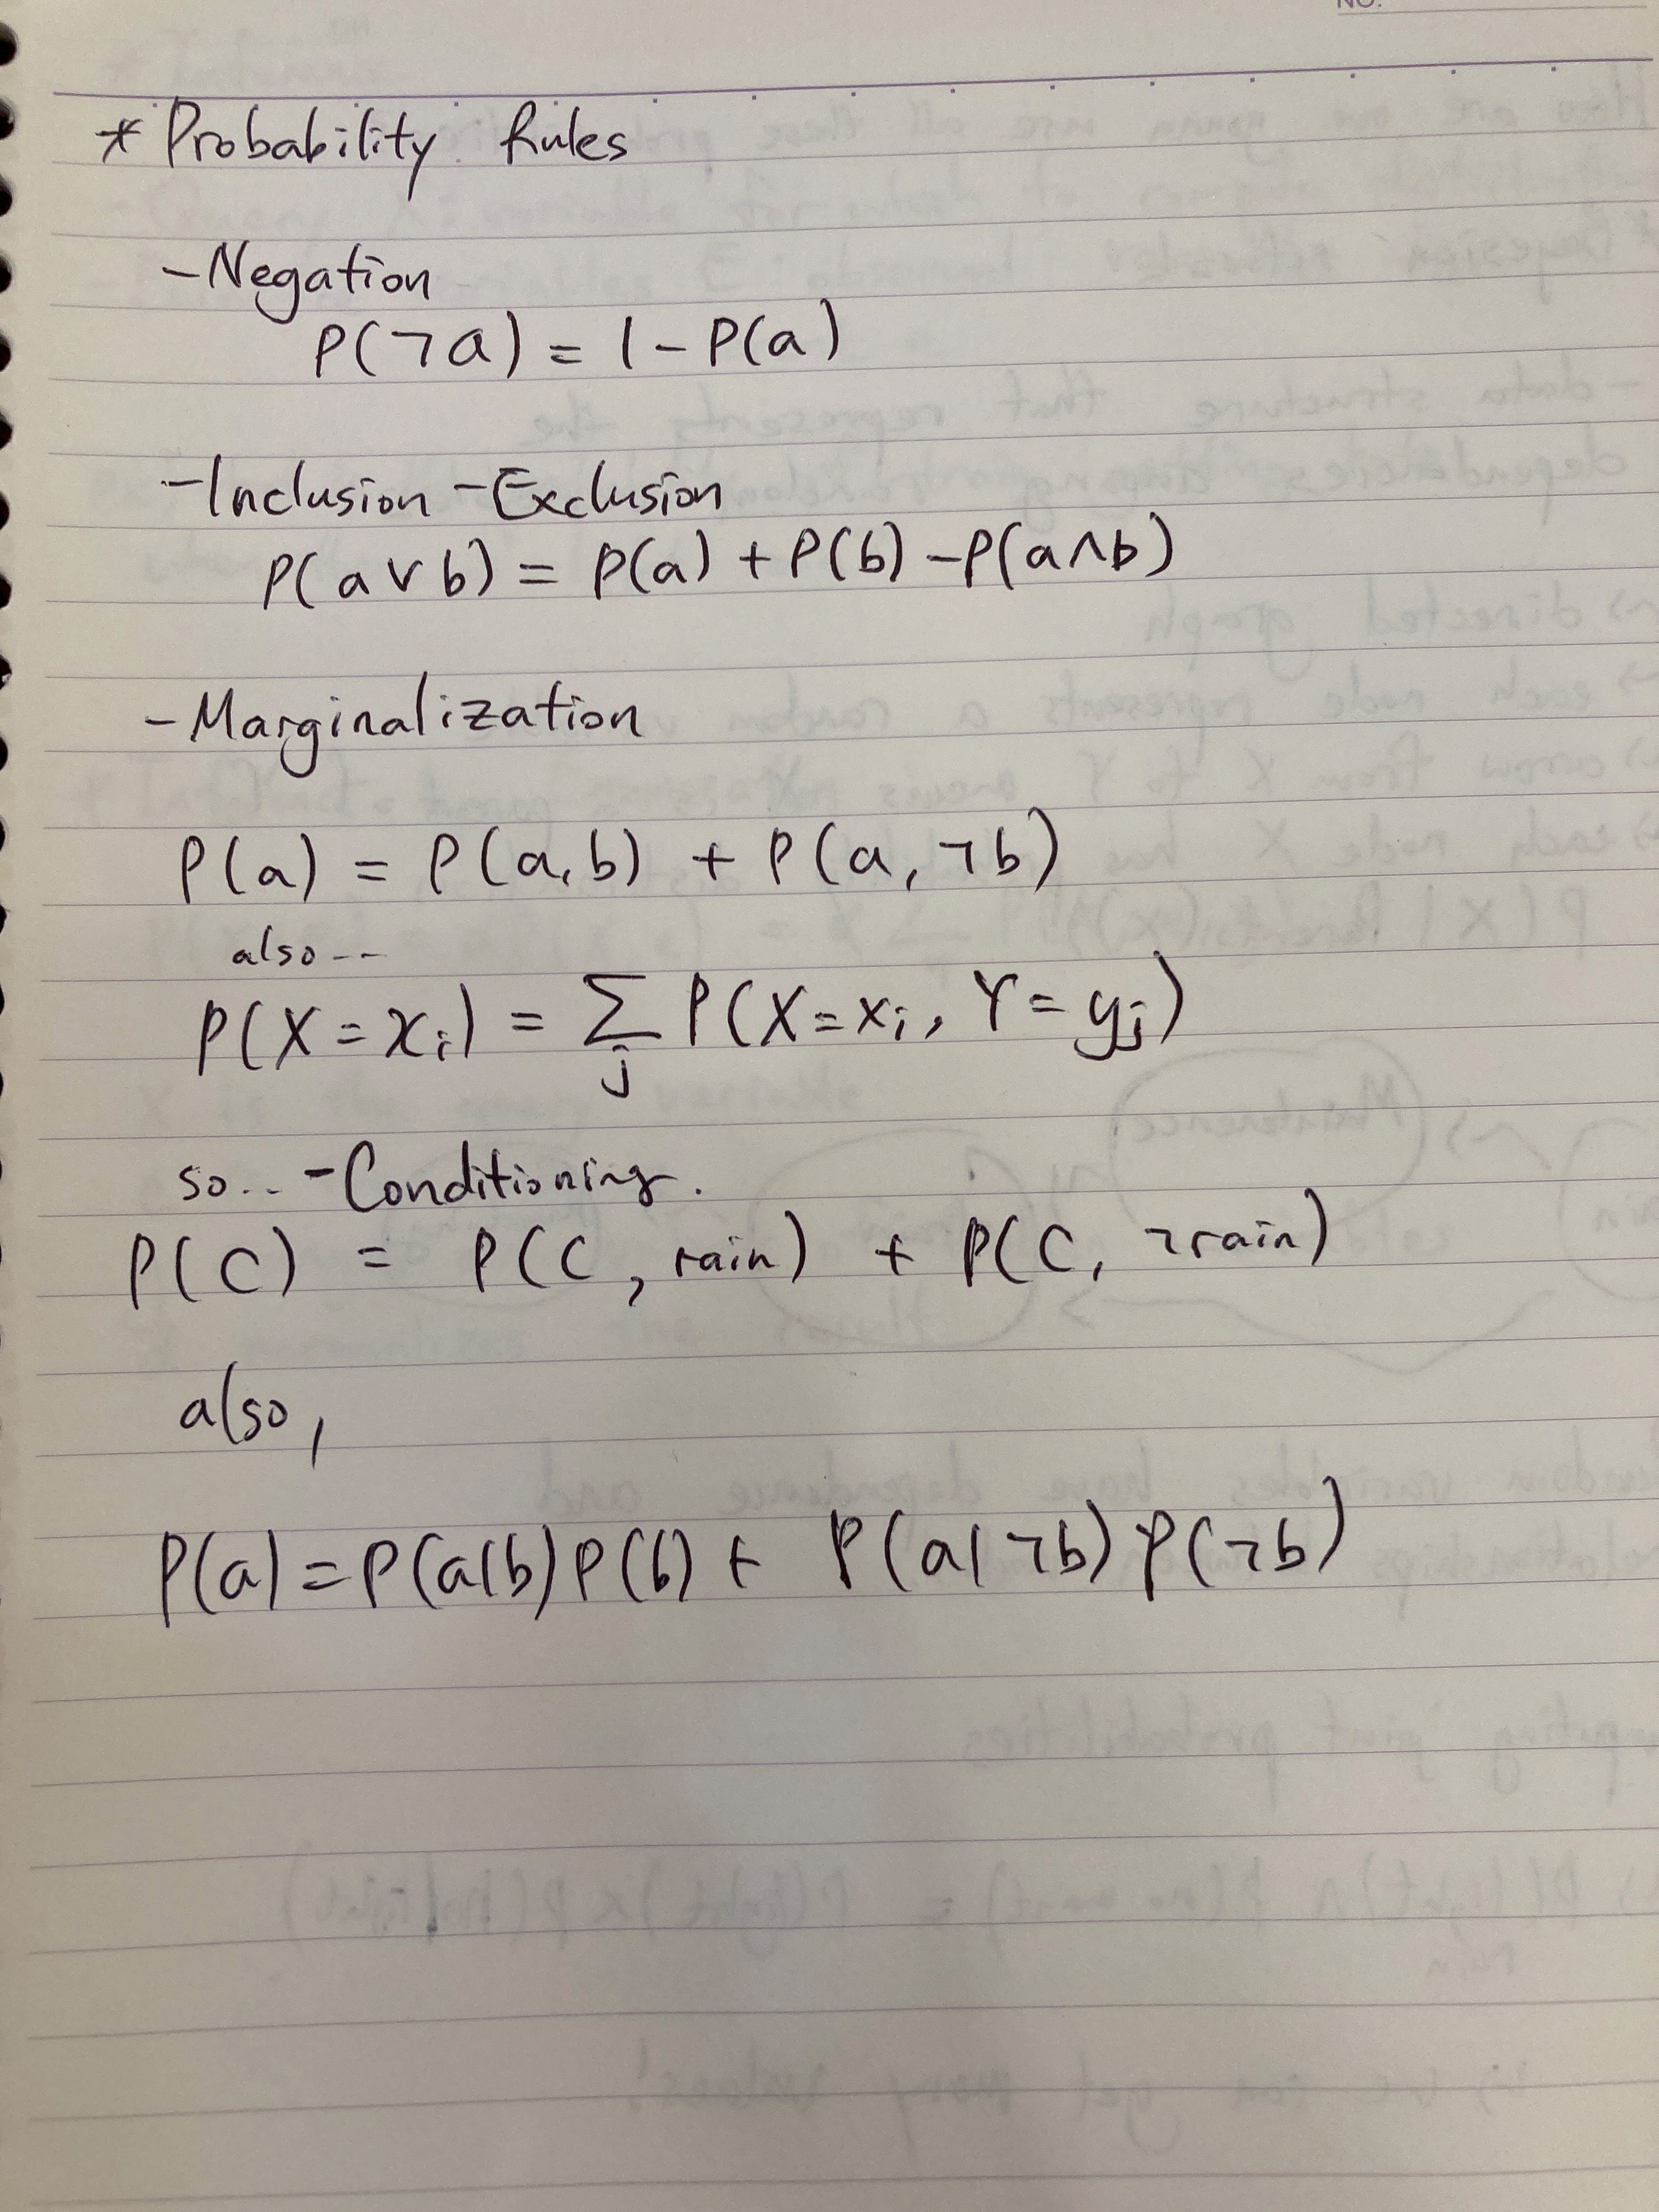 NO.
* Probability Rules
- Negation
P(¬a) = 1 - P(a)
- Inclusion - Exclusion
P(a∨b) = P(a) + P(b) - P(a∧b)
- Marginalization
P(a) = P(a,b) + P(a, ¬b)
also --
P(X = xᵢ) = Σⱼ P(X=xᵢ, Y=yⱼ)
so.. - Conditioning.
P(C) = P(C, rain) + P(C, ¬rain)
also,
P(a) = P(a|b)P(b) + P(a|¬b)P(¬b)